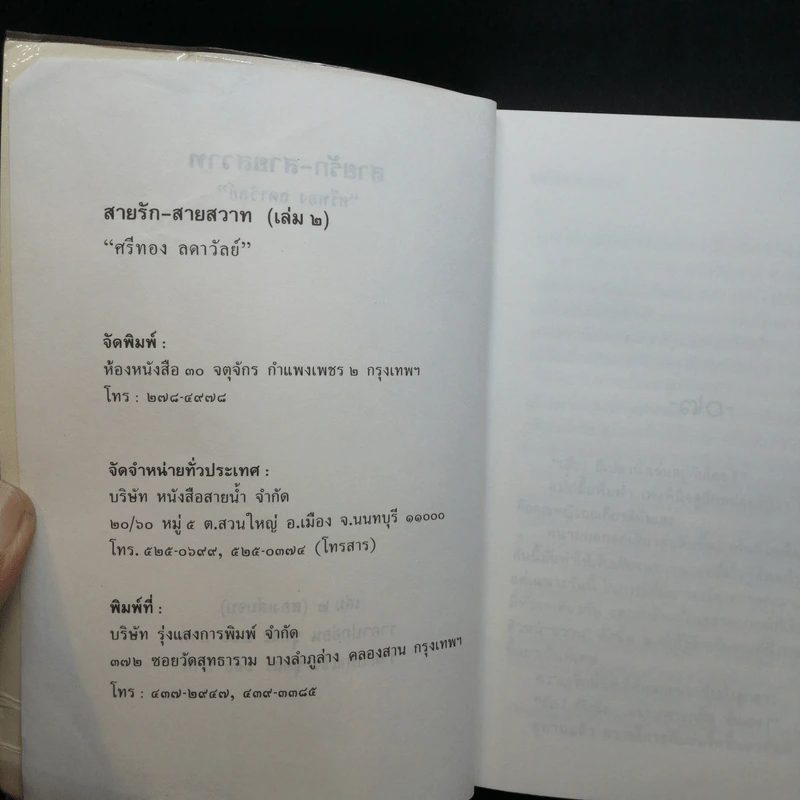 สายรัก-สายสวาท (เล่ม ๒)
“ศรีทอง ลดาวัลย์”
จัดพิมพ์ :
ห้องหนังสือ ๓๐ จตุจักร กำแพงเพชร ๒ กรุงเทพฯ
โทร : ๒๗๘-๔๙๗๘
จัดจำหน่ายทั่วประเทศ :
บริษัท หนังสือสายน้ำ จำกัด
๒๐/๖๐ หมู่ ๕ ต.สวนใหญ่ อ.เมือง จ.นนทบุรี ๑๑๐๐๐
โทร. ๕๒๕-๐๖๙๙, ๕๒๕-๐๓๗๔ (โทรสาร)
พิมพ์ที่ :
บริษัท รุ่งแสงการพิมพ์ จำกัด
๓๗๒ ซอยวัดสุทธาราม บางลำภูล่าง คลองสาน กรุงเทพฯ
โทร : ๔๓๗-๒๙๔๗, ๔๓๙-๓๓๘๕